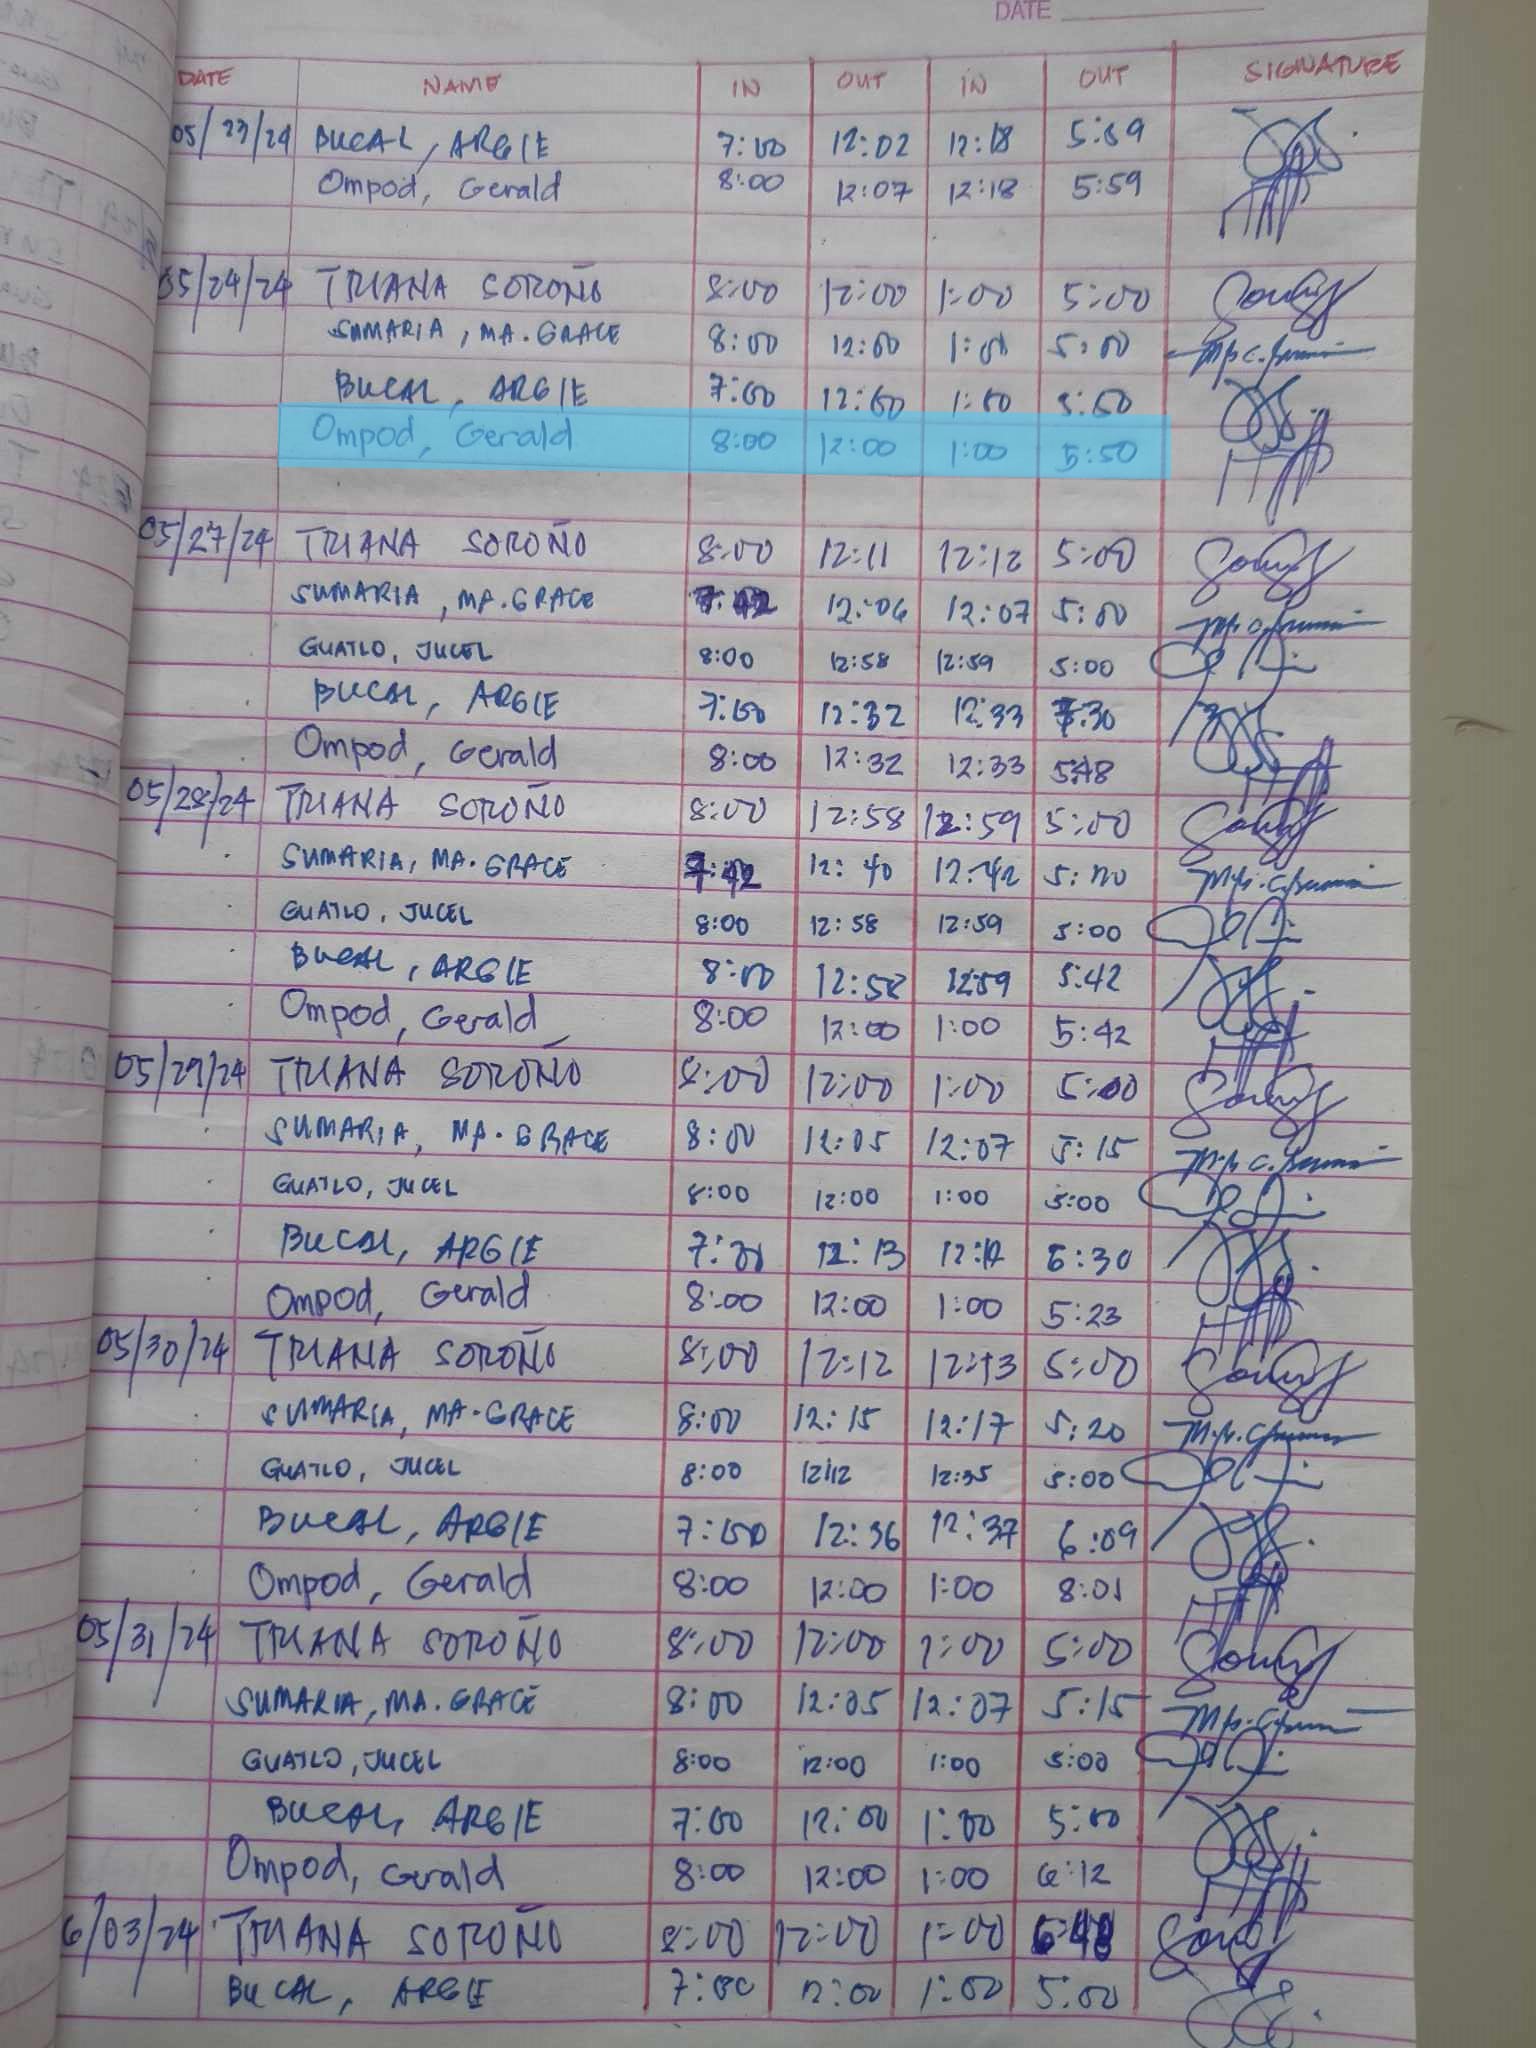 DATE
DATE NAME IN OUT IN OUT SIGNATURE
05/23/24 BUCAL, ARGIE 7:00 12:02 12:18 5:59
Ompod, Gerald 8:00 12:07 12:18 5:59
05/24/24 TRIANA SOROÑO 8:00 12:00 1:00 5:00
SUMARIA, MA. GRACE 8:00 12:00 1:00 5:00
BUCAL, ARGIE 7:00 12:00 1:00 5:50
Ompod, Gerald 8:00 12:00 1:00 5:50
05/27/24 TRIANA SOROÑO 8:00 12:11 12:12 5:00
SUMARIA, MA. GRACE 7:42 12:06 12:07 5:00
GUATLO, JUCEL 8:00 12:58 12:59 5:00
BUCAL, ARGIE 7:00 12:32 12:33
Ompod, Gerald 8:00 12:32 12:33 5:48
05/28/24 TRIANA SOROÑO 8:00 12:58 12:59 5:00
SUMARIA, MA. GRACE 7:42 12:40 12:42 5:00
GUATLO, JUCEL 8:00 12:58 12:59 5:00
BUCAL, ARGIE 8:00 12:58 12:59 5:42
Ompod, Gerald 8:00 12:00 1:00 5:42
05/29/24 TRIANA SOROÑO 8:00 12:00 1:00 5:00
SUMARIA, MA. GRACE 8:00 12:05 12:07 5:15
GUATLO, JUCEL 8:00 12:00 1:00 5:00
BUCAL, ARGIE 12:13
Ompod, Gerald 8:00 12:00 1:00 5:23
05/30/24 TRIANA SOROÑO 8:00 12:12 12:13 5:00
SUMARIA, MA. GRACE 8:00 12:15 12:17 5:20
GUATLO, JUCEL 8:00 12:12 12:35 5:00
BUCAL, ARGIE 7:00 12:36 12:37 6:09
Ompod, Gerald 8:00 12:00 1:00 8:01
05/31/24 TRIANA SOROÑO 8:00 12:00 1:00 5:00
SUMARIA, MA. GRACE 8:00 12:05 12:07 5:15
GUATLO, JUCEL 8:00 12:00 1:00 5:00
BUCAL, ARGIE 7:00 12:00 1:00 5:00
Ompod, Gerald 8:00 12:00 1:00 6:12
6/03/24 TRIANA SOROÑO 8:00 12:00 1:00
BUCAL, ARGIE 7:00 12:00 1:00 5:00